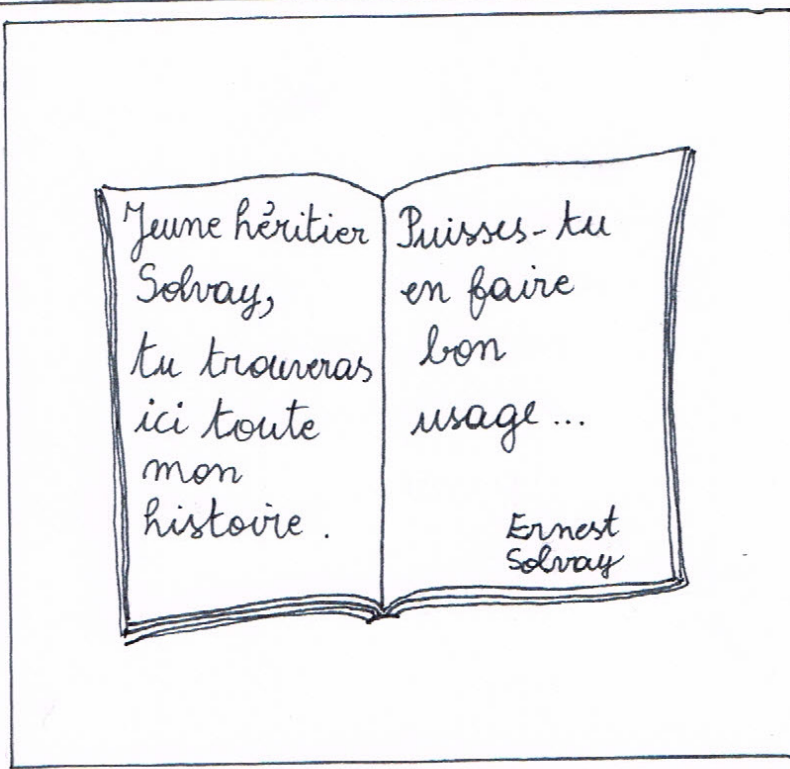 Jeune héritier
Solvay,
tu trouveras
ici toute
mon
histoire.
Puisses-tu
en faire
bon
usage...
Ernest
Solvay